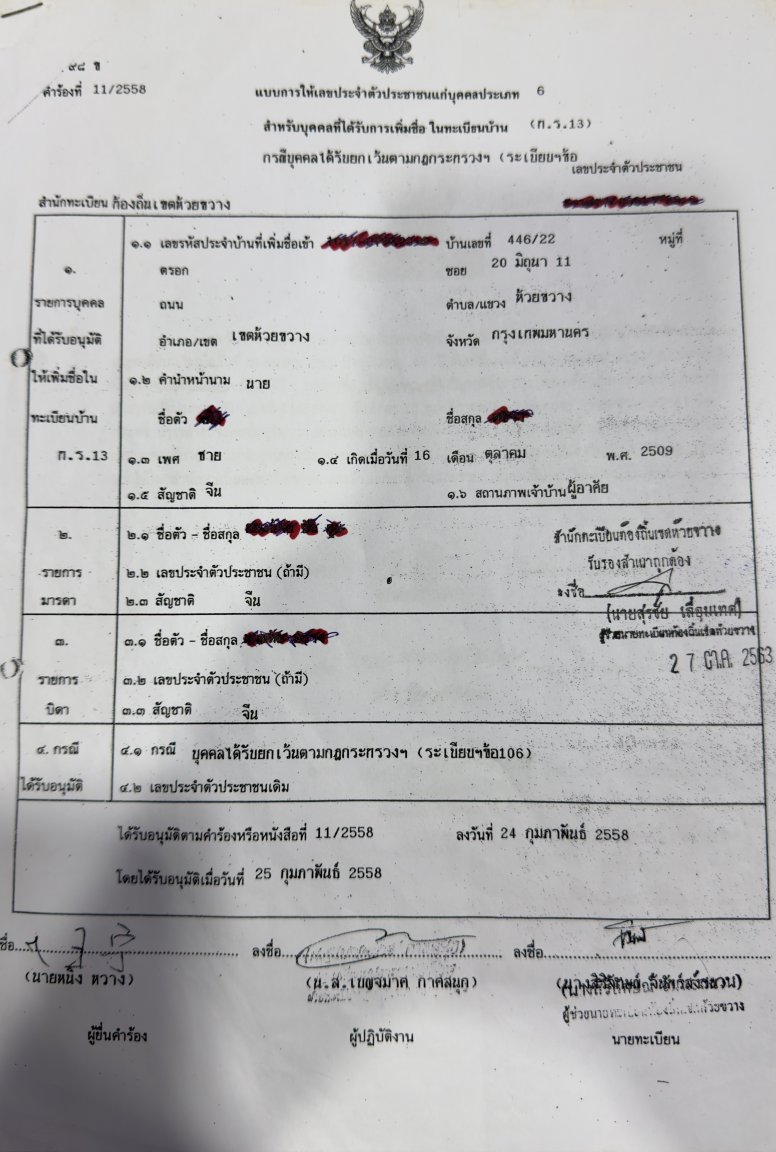 ๙๘ ข
คำร้องที่ 11/2558
แบบการให้เลขประจำตัวประชาชนแก่บุคคลประเภท 6
สำหรับบุคคลที่ได้รับการเพิ่มชื่อ ในทะเบียนบ้าน (ท.ร.13)
กรณีบุคคลได้รับยกเว้นตามกฎกระทรวงฯ (ระเบียบฯข้อ
เลขประจำตัวประชาชน
สำนักทะเบียน ท้องถิ่นเขตห้วยขวาง
๑.
รายการบุคคล
ที่ได้รับอนุมัติ
ให้เพิ่มชื่อใน
ทะเบียนบ้าน
ท.ร.13
๑.๑ เลขรหัสประจำบ้านที่เพิ่มชื่อเข้า บ้านเลขที่ 446/22 หมู่ที่
ตรอก ซอย 20 มิถุนา 11
ถนน ตำบล/แขวง ห้วยขวาง
อำเภอ/เขต เขตห้วยขวาง จังหวัด กรุงเทพมหานคร
๑.๒ คำนำหน้านาม นาย
ชื่อตัว ชื่อสกุล
๑.๓ เพศ ชาย ๑.๔ เกิดเมื่อวันที่ 16 เดือน ตุลาคม พ.ศ. 2509
๑.๕ สัญชาติ จีน ๑.๖ สถานภาพเจ้าบ้าน ผู้อาศัย
๒.
รายการ
มารดา
๒.๑ ชื่อตัว - ชื่อสกุล
๒.๒ เลขประจำตัวประชาชน (ถ้ามี)
๒.๓ สัญชาติ จีน
สำนักทะเบียนท้องถิ่นเขตห้วยขวาง
รับรองสำเนาถูกต้อง
ลงชื่อ
(นายสุรชัย เลื่อมเทศ)
ผู้ช่วยนายทะเบียนท้องถิ่นเขตห้วยขวาง
27 ต.ค. 2563
๓.
รายการ
บิดา
๓.๑ ชื่อตัว - ชื่อสกุล
๓.๒ เลขประจำตัวประชาชน (ถ้ามี)
๓.๓ สัญชาติ จีน
๔. กรณี
ได้รับอนุมัติ
๔.๑ กรณี บุคคลได้รับยกเว้นตามกฎกระทรวงฯ (ระเบียบฯข้อ106)
๔.๒ เลขประจำตัวประชาชนเดิม
ได้รับอนุมัติตามคำร้องหรือหนังสือที่ 11/2558 ลงวันที่ 24 กุมภาพันธ์ 2558
โดยได้รับอนุมัติเมื่อวันที่ 25 กุมภาพันธ์ 2558
ชื่อ ลงชื่อ ลงชื่อ
(นายหนิง หวาง) (น.ส.เบญจมาศ ภาคสนุก)
ผู้ช่วยนายทะเบียนท้องถิ่นเขตห้วยขวาง
ผู้ยื่นคำร้อง ผู้ปฏิบัติงาน นายทะเบียน